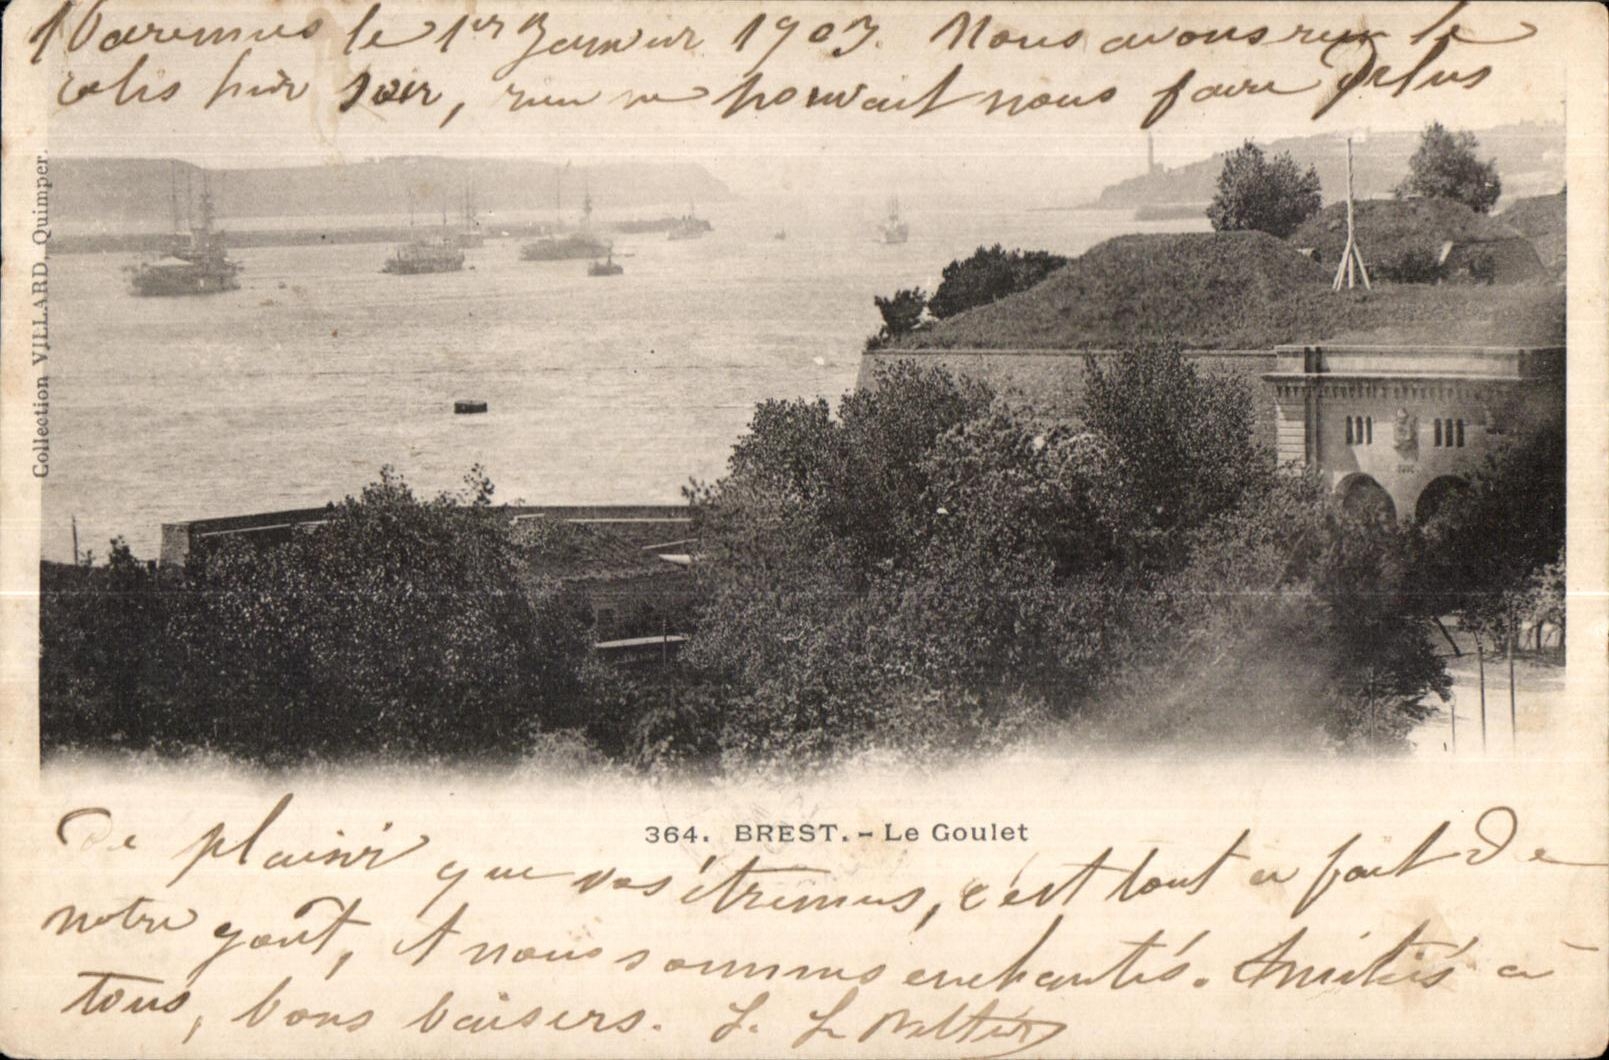 Varennes le 1er Janvier 1903. Nous avons reçu le
colis hier soir, rien ne pouvait nous faire plus
Collection VILLARD, Quimper.
364. BREST. - Le Goulet
de plaisir que vos étrennes, c'est tout à fait de
notre goût, et nous sommes enchantés. Amitiés à
tous, bons baisers.